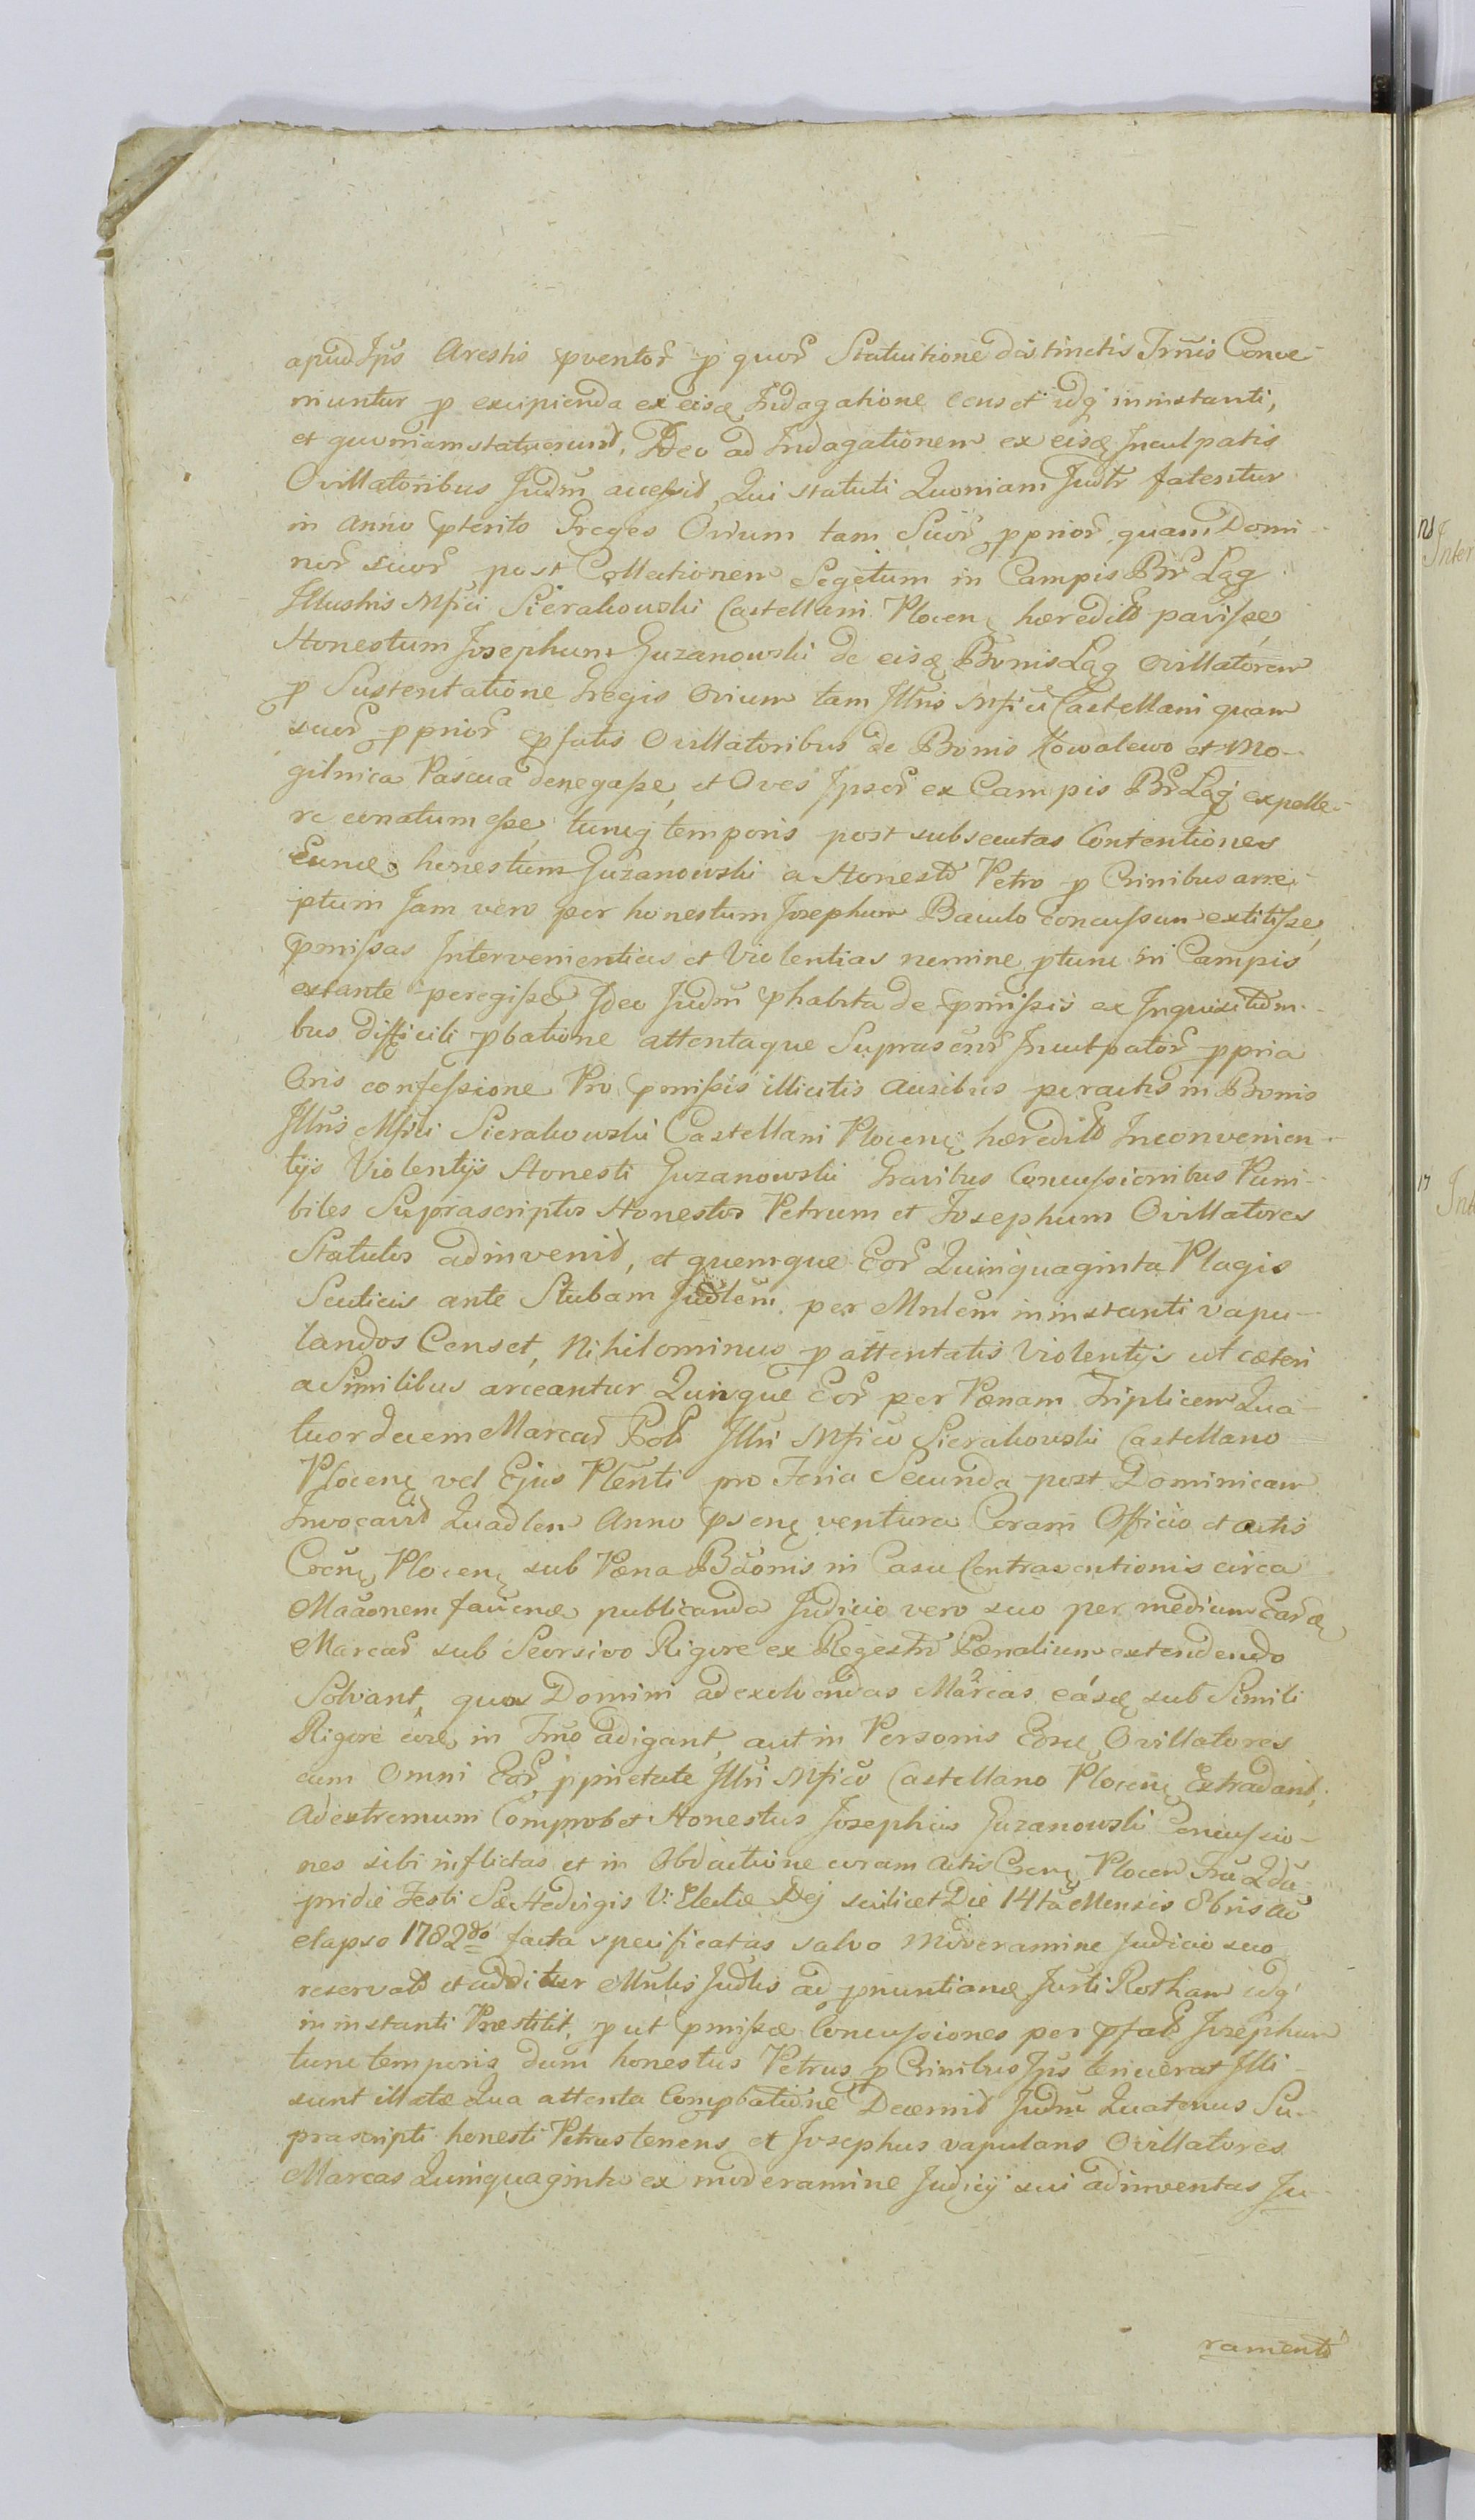 apud Ips Arestis pventor p quor Statuitione distinctis Trnis Conve-
niuntur p excipienda ex eisq Indagatione censet idq in instanti,
et quoniam statuerunt, Ideo ad Indagationem ex eisq Inculpatis
Ovillatoribus Judm accessit, Qui statuti Quoniam Judtr fatentur
in Anno pterito Greges Ovium tam Suor pprior quam Domi-
nor suor post Collectionem Segetum in Campis Br Ląg
Illustris Mfici Sierakowski Castellani Plocen hæredit pavisse,
Honestum Josephum Guzanowski de eisq Bonis Ląg Ovillatorem
p Sustentatione Gregis Ovium tam Illris Mfici Castellani quam
suor pprior pfatis Ovillatoribus de Bonis Kowalewo et Mo-
gilnica Pascua denegasse, et Oves Ipsor ex Campis Br Ląg expelle-
re conatum esse, tuncq temporis post subsecutas Contentiones
Eunde honestum Guzanowski a Honesto Petro p Crinibus arre-
ptum Jam vero per honestum Josephum Baculo concussum extitisse,
pmissas Intervenientias et Violentias nemine ptunc in Campis
extante peregisse, Ideo Judm phabita de pmissis ex Inquisitionibus
bus difficili pbatione attentaque Suprascrir Inculpator ppria
Oris confessione Pro pmissis illicitis ausibus peractis in Bonis
Illris Mfici Sierakowski Castellani Plocen hæredit Inconvenien-
tijs Violentijs Honesti Guzanowski Gravibus Concussionibus Puni-
biles Suprascriptos Honestos Petrum et Josephum Ovillatores
Statutos adinvenit, et quemque Eor Quinquaginta Plagis
Scuticis ante Stubam Judlem per Mnlem in instanti vapu-
landos Censet, Nihilominus p attentatis Violentijs ut cæteri
a Similibus arceantur Quinque Eor per Pœnam Triplicem Qua-
tuordecem Marcar Pol Illri Mfico Sierakowski Castellano
Plocen vel Ejus Plenti pro Feria Secunda post Dominicam
Invocavit Quadlem Anno psen ventura Coram Officio et actis
Cren Plocen sub Pœna Bãonis in Casu Contraventionis circa
Mãaonem faciend publicanda Judicio vero suo per medium Eard
Marcar sub Seorsivo Rigore ex Regestro Pœnalium extendendo
Solvant, quos Domini ad exolvendas Marcas easd sub Simili
Rigore eord in Trno adigant, aut in Personis Eosd Ovillatores
cum Omni Eor pprietate Illri Mfico Castellano Plocen Extradant,
Ad extremum Comprobet Honestus Josephus Guzanowski Concussio-
nes sibi inflictas et in Obductione coram Actis Cren Plocen Fra 2da
pridie Festi Sæ Hedvigis V: Electæ Dej scilicet Die 14ta Mensis 8bris ao
elapso 1782do facta specificatas salvo moderamine Judicio suo
reservato et additur Mnlis Judlis ad pnuntiand Jurti Rotham idq
in instanti Præstitit, p ut pmissæ Concussiones per pfat Josephum
tunc temporis dum honestus Petrus p Crinibus Ips tenuerat Illi
sunt illatæ Qua attenta Compbatione Decernit Judm Quatenus Su-
prascripti honesti Petrus tenens et Josephus vapulans Ovillatores
Marcas Quinquaginta ex moderamine Judicij sui adinventas Ju-
ramento
Inter
17